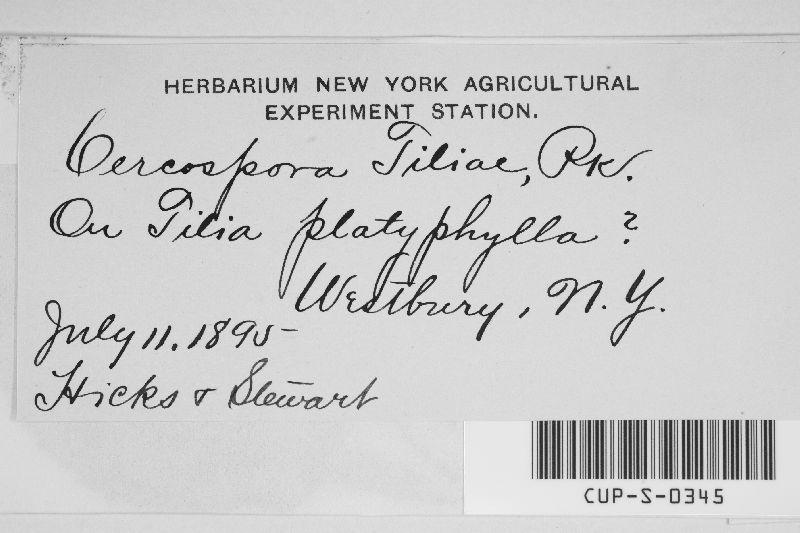 HERBARIUM NEW YORK AGRICULTURAL
EXPERIMENT STATION.
Cercospora Tiliae, Pk.
On Tilia platyphylla ?
Westbury, N. Y.
July 11. 1895
Hicks & Stewart
CUP-S-0345